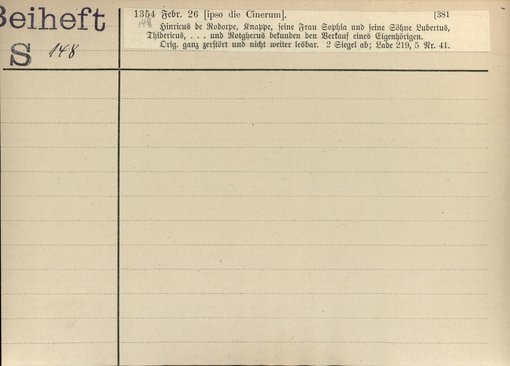 Beiheft
S 148
1354 Febr. 26 [ipso die Cinerum]. [381
Hinricus de Rodorpe, Knappe, seine Frau Sophia und seine Söhne Lubertus,
Thidericus, . . . und Rotgherus bekunden den Verkauf eines Eigenhörigen.
Orig. ganz zerstört und nicht weiter lesbar. 2 Siegel ab; Lade 219, 5 Nr. 41.